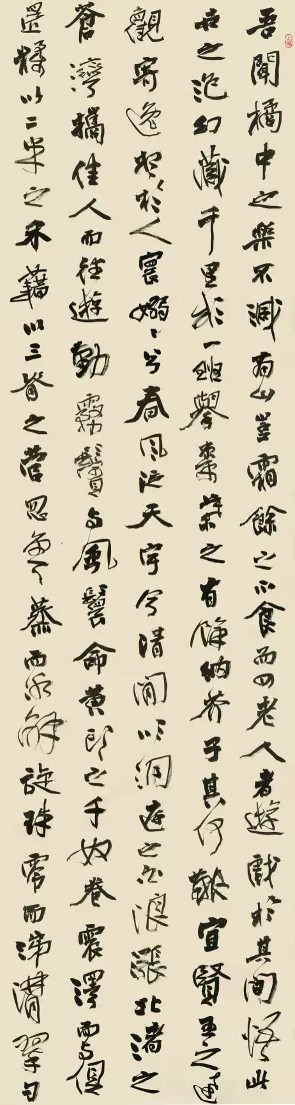 吾聞橘中之樂不減商山豈霜餘之不食而四老人者遊戲於其間悟此
世之泡幻藏千里於一斑舉棗葉之有餘納芥子其何艱宜賢王之達
觀寄逸想於人寰嫋〻兮春風泛天宇兮清閒吹洞庭之白浪漲北渚之
蒼灣攜佳人而往遊勤霧鬢與風鬟命黃頭之千奴卷震澤而與俱
還糅以二米之禾藉以三脊之菅忽雲蒸而冰解旋珠零而涕潸翠勺